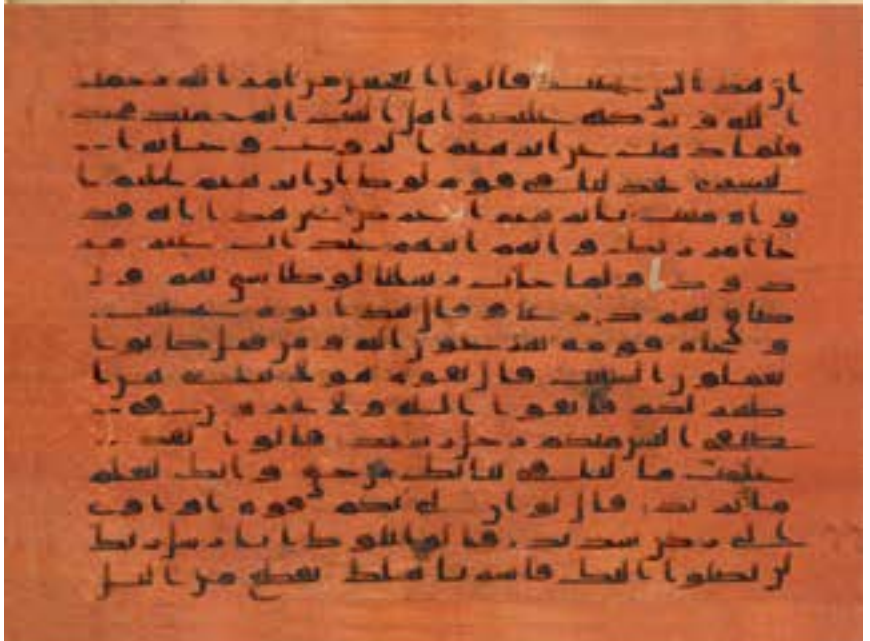 ان هذا لشي عجيب قالوا اتعجبين من امر الله رحمت
الله و بركته عليكم اهل البيت انه حميد مجيد
فلما ذهب عن ابرهيم الروع و جاته ا
لبشرى يجدلنا في قوم لوط ان ابرهيم لحليم ا
واه منيب يابرهيم اعرض عن هذا انه قد
جا امر ربك و انهم اتيهم عذاب غير مر
دود و لما جات رسلنا لوطا سي بهم و
ضاق بهم ذرعا و قال هذا يوم عصيب
و جاه قومه يهرعون اليه و من قبل كانوا
يعملون السيت قال يقوم هولا بناتي هن ا
طهر لكم فاتقوا الله و لا تخزون في
ضيفي اليس منكم رجل رشيد قالوا لقد
علمت ما لنا في بناتك من حق و انك لتعلم
ما نريد قال لو ان لي بكم قوه او اوي
الى ركن شديد قالوا يلوط انا رسل ربك
لن يصلوا اليك فاسر باهلك بقطع من اليل